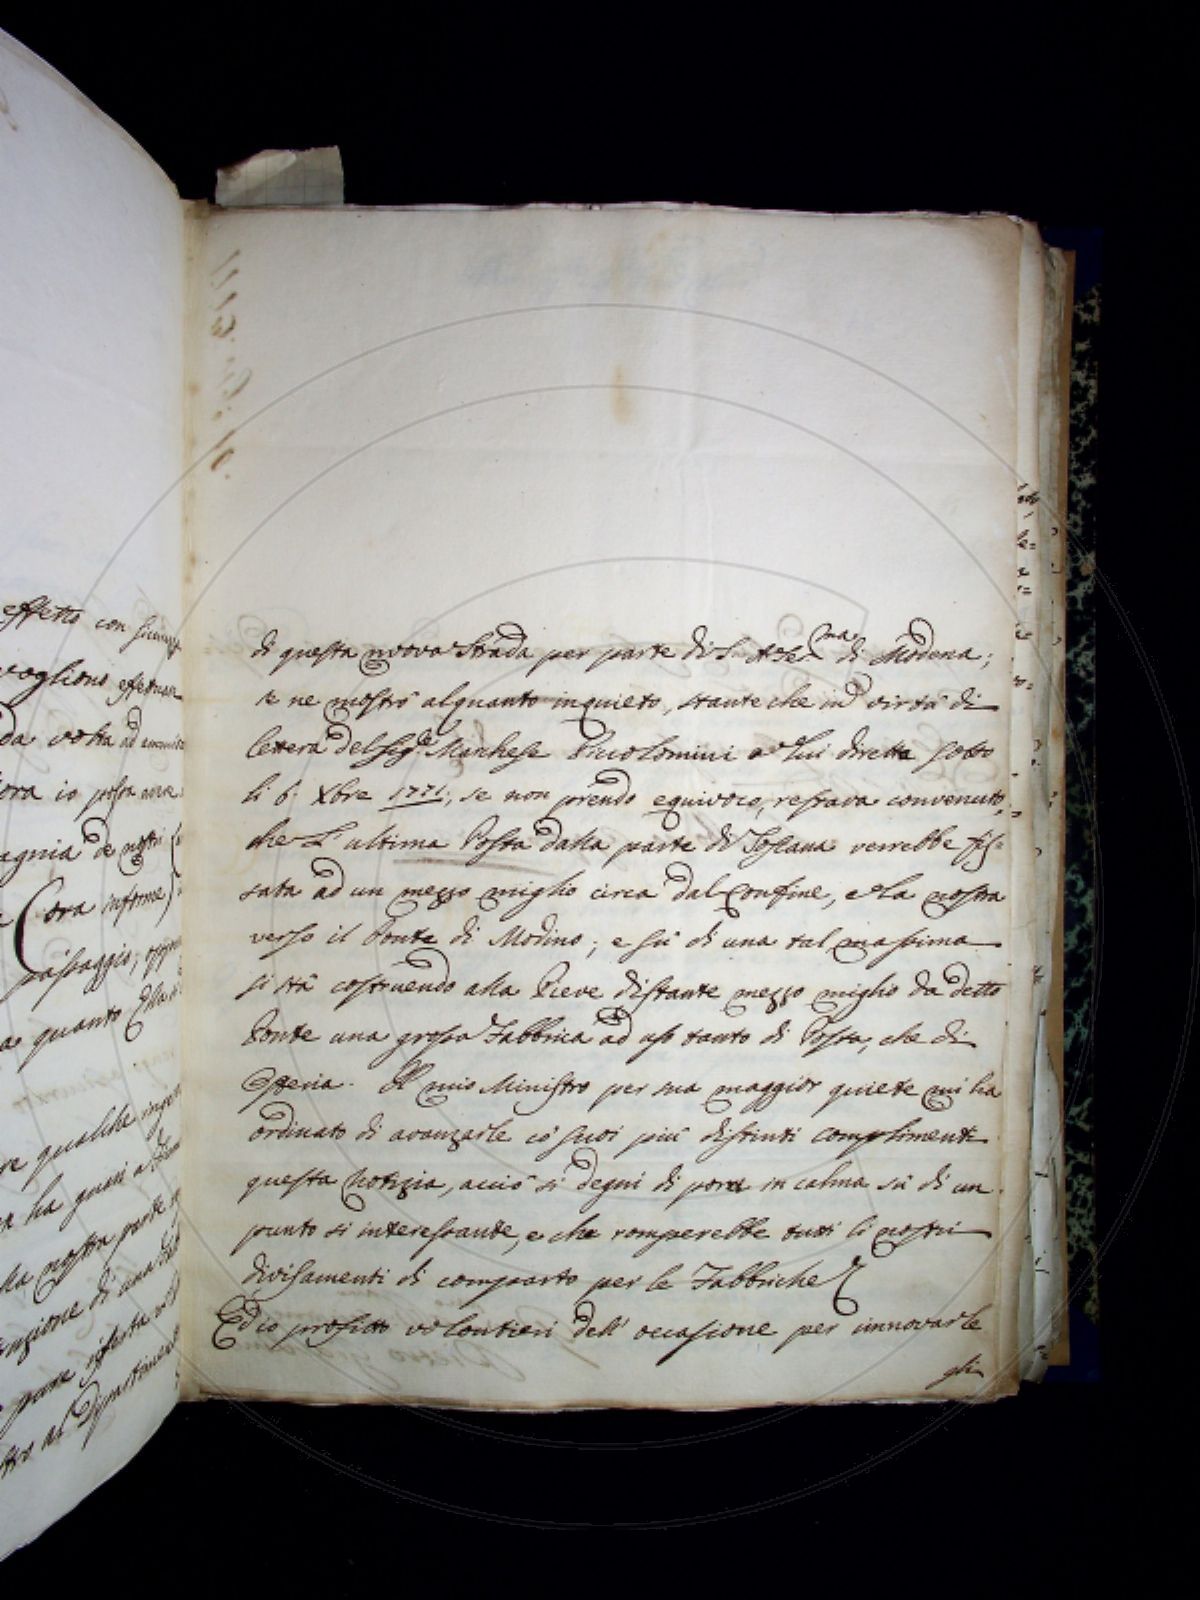 effetto con
vogliono effettuar
da volta ad
ora io possa
agnia de nostri
(ora informe)
passaggio;
quanto Ella
re qualche
ha quasi a
lla nostra parte
nzione di una
Dipartiment
di questa nuova Strada per parte di S. A. Ser.ma di Modena;
e ne mostrò alquanto inquieto, stante che in virtù di
lettera del Sig.r Marchese Piccolomini a lui diretta sotto
li 6. Xbre 1771, se non prendo equivoco, restava convenuto,
che L'ultima Posta dalla parte di Toscana verrebbe fis=
sata ad un mezzo miglio circa dal Confine, e la nostra
verso il Ponte di Modino; e sù di una tal massima
si stà costruendo alla Pieve distante mezzo miglio da detto
Ponte una grossa Fabbrica ad uso tanto di Posta, che di
Osteria. Il mio Ministro per sua maggior quiete mi ha
ordinato di avanzarle co' suoi più distinti complimenti
questa notizia, acciò si degni di porre in calma sù di un
punto sì interessante, e che romperebbe tutti li nostri
divisamenti di comparto per le Fabbriche
Ed io profitto volontieri dell' occasione per innovarle
gli